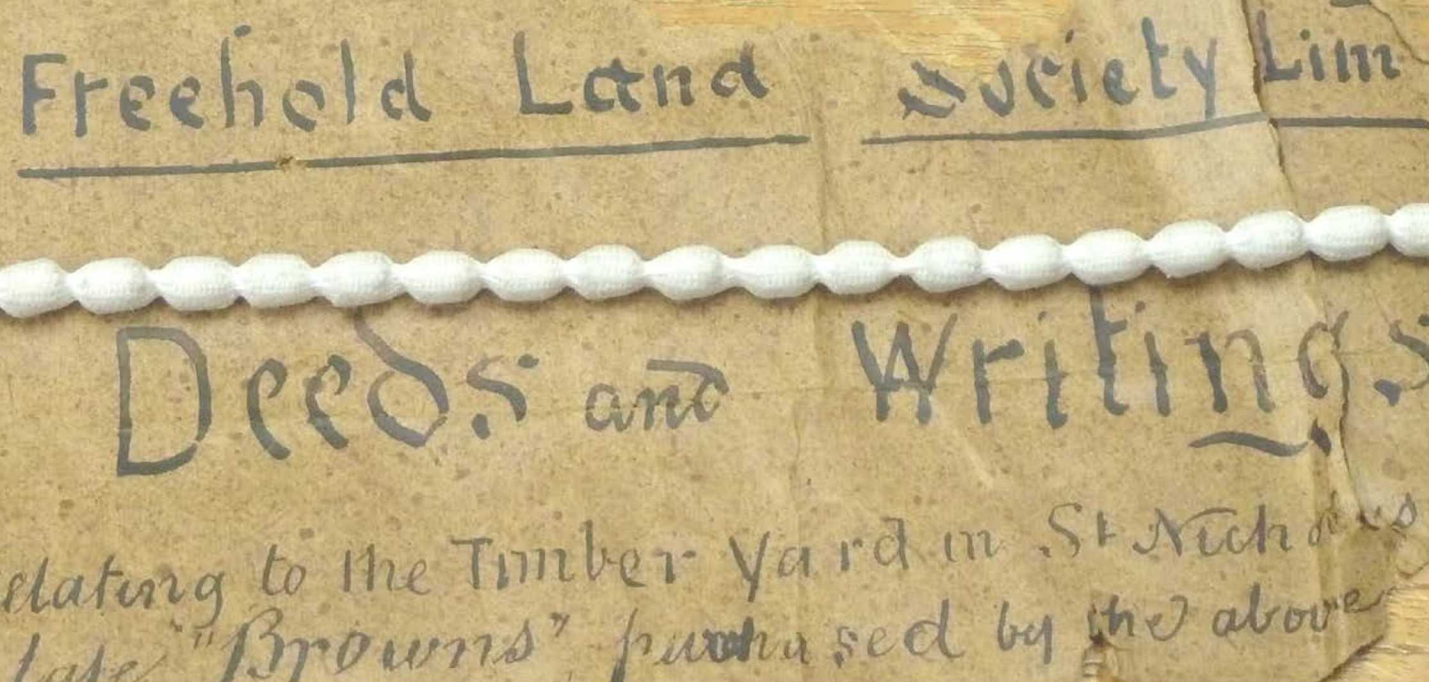 Freehold Land Society Lim
Deeds and Writings
elating to the Timber Yard in St Nicholas
late "Browns" purchased by the above